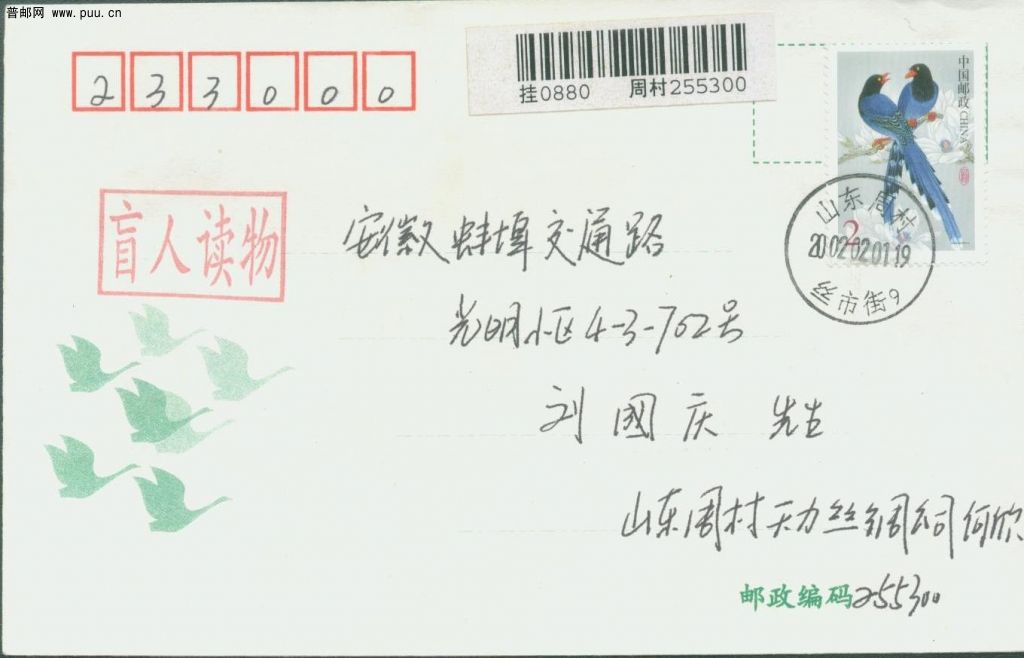 普邮网 www.puu.cn
233000
挂0880 周村255300
中国邮政 CHINA
2
山东周村
2002.02.01.19
丝市街9
盲人读物
安徽蚌埠交通路
光明小区4-3-702号
刘國庆 先生
山东周村天力丝绸公司何欣
邮政编码255300